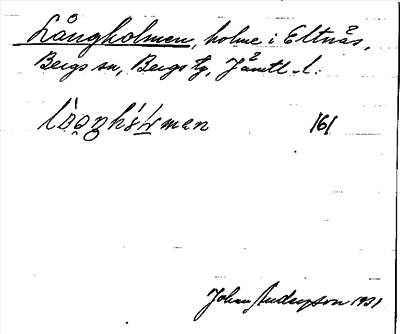 Långholmen, holme i Eltnäs,
Bergs sn, Bergs tg, Jämtl. l.
161
Johan Anderzson 1931